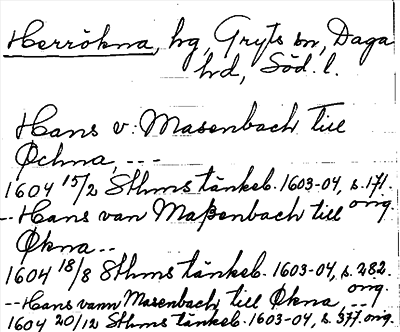 Herrökna, hg, Gryts sn, Daga
hrd, Söd. l.
Hans v. Masenbach till
Öchna, ---
1604 15/2 Sthms tänkeb. 1603-04, s. 171.
orig.
--Hans van Maßenbach till
Økna--
1604 18/8 Sthms tänkeb. 1603-04, s. 282.
orig.
--Hans vann Masenbach till Økna, --
1604 20/12 Sthms tänkeb. 1603-04, s. 377. orig.